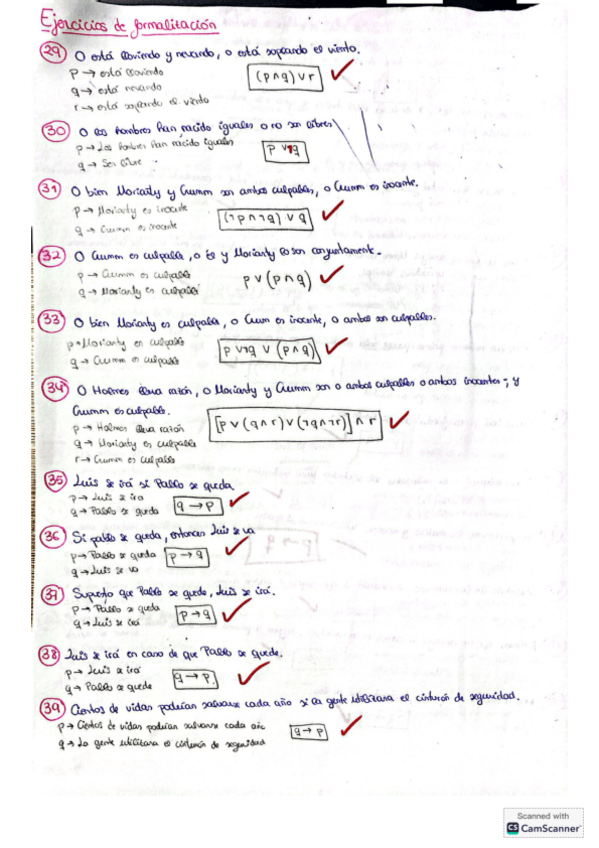 Ejercicios de formalización
29 O está lloviendo y nevando, o está soplando el viento.
p → está lloviendo
q → está nevando
r → está soplando el viento
(p ∧ q) ∨ r
30 O los hombres han nacido iguales o no son libres
p → Los hombres han nacido iguales
q → Ser libre
p ∨ ¬q
31 O bien Moriarty y Gumm son ambos culpables, o Gumm es inocente.
p → Moriarty es inocente
q → Gumm es inocente
(¬p ∧ ¬q) ∨ q
32 O Gumm es culpable, o él y Moriarty lo son conjuntamente.
p → Gumm es culpable
q → Moriarty es culpable
p ∨ (p ∧ q)
33 O bien Moriarty es culpable, o Gumm es inocente, o ambos son culpables.
p → Moriarty es culpable
q → Gumm es culpable
p ∨ ¬q ∨ (p ∧ q)
34 O Holmes lleva razón, o Moriarty y Gumm son o ambos culpables o ambos inocentes; y
Gumm es culpable.
p → Holmes lleva razón
q → Moriarty es culpable
r → Gumm es culpable
[p ∨ (q ∧ r) ∨ (¬q ∧ ¬r)] ∧ r
35 Luis se irá si Pablo se queda.
p → Luis se ira
q → Pablo se queda
q → p
36 Si pablo se queda, entonces Luis se va
p → Pablo se queda
q → Luis se va
p → q
37 Supuesto que Pablo se quede, Luis se irá.
p → Pablo se queda
q → Luis se irá
p → q
38 Luis se irá en caso de que Pablo se quede.
p → Luis se irá
q → Pablo se quede
q → p.
39 Cientos de vidas podrían salvarse cada año si la gente utilizara el cinturón de seguridad.
p → Cientos de vidas podrían salvarse cada año
q → La gente utilizara el cinturón de seguridad
q → p
Scanned with
CS CamScanner